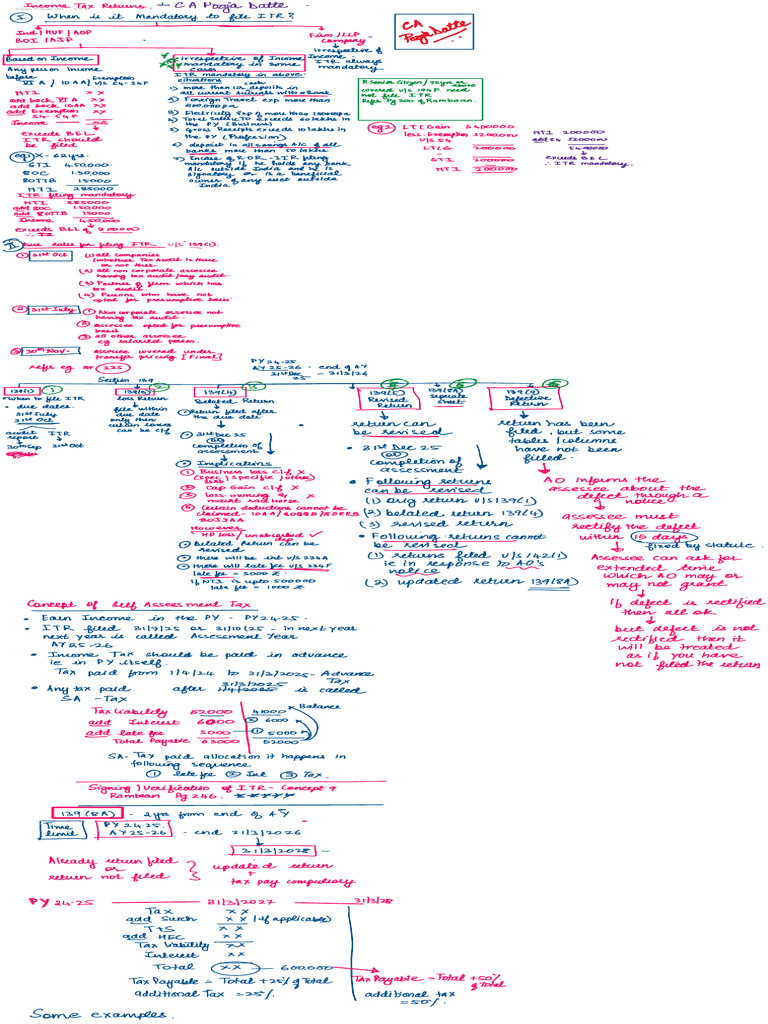 Income Tax Returns. - CA Pooja Datte
I When is it Mandatory to file ITR?
CA
Pooja Datte
Ind / HUF / AOP
BOI / AJP
Firm / LLP
Company
Irrespective of
Income
ITR always
mandatory
Based on Income
Any person Income
before Exemption
VIA / 10AA / U/s 54-54F
NTI XX
add back VIA XX
add back 10AA XX
add Exemption XX
54-54F
Income XX
exceeds BEL
ITR should
be
filed
eg1 X - 62yrs.
GTI 4,50,000
80C 150,000
80TTB 15000
NTI 285000
ITR filing mandatory
NTI 285000
add 80C 150,000
add 80TTB 15000
Income 450,000
exceeds BEL of 300000
irrespective of Income
mandatory in some
cases
ITR mandatory in above
situations
1) more than 1cr deposits in
all current accounts with a Bank
2) Foreign Travel exp more than
200,000 Rs
3) Electricity exp of more than 100000 Rs
4) Total Sales T/O exceeds 60 lakhs in
the PY (Business)
5) Gross Receipts exceeds 10 lakhs in
the PY (Profession)
6) deposit in all savings A/C of all
banks more than 50 lakhs
7) Incase of ROR - ITR filing
mandatory if he holds any bank
A/C outside India and he is
signatory or is a beneficial
owner of any asset outside
India
R Senior Citizen / 75yrs or above
covered U/s 194P need
not file ITR
Refer Pg 300 of Ramban.
eg2 LTC Gain 5400000
less Exemption 5200000
U/s 54
LTCG 200000
GTI 200000
NTI 200000
NTI 200000
add 54 5200000
5400000
exceeds BEL
∴ ITR mandatory.
II Due dates for filing ITR U/s 139(1).
1 31st Oct
(1) all companies
(whether Tax Audit is there
or not there
(2) all non corporate assessee
having tax audit / any audit.
(3) Partner of firm which has
tax audit.
(4) Persons who have not
opted for presumptive basis
2 31st July
1 Non corporate assessee not
having tax audit.
2 assessee opted for presumptive
basis
3 all other assessee
eg salaried person.
3 30th Nov.
assessee covered under
transfer pricing [Final]
refer eg on 335
PY 24-25
AY 25-26 - end of AY
31st Dec - 31/3/26
25
Section 139
139(1) 1
when to file ITR
• due dates
31st July
31st Oct
audit report ITR
30th Sep 31st Oct
139(3) 2
Loss Return
file within
due date
only then
certain losses
can be c/f
139(4) 3
Belated Return
• Return filed after
the due date
• 31st Dec 25
OR
completion of
assessment
• Implications
1 Business loss c/f X
(spec / specific / other)
2 Cap Gain c/f X
3 Loss - owning &
maint race horse
4 Certain deductions cannot be
claimed - 10AA / 80RRB
However
HP loss / unabsorbed dep ✓
• Belated Return can be
revised
• there will be Int U/s 234A
• there will late fee U/s 234F
late fee = 5000
if NTI is upto 500000
late fee = 1000
139(5)
Revised
Return
return can
be revised
• 31st Dec 25
OR
completion of
assessment
• Following returns
can be revised
(1) orig return U/s 139(1)
(2) belated return 139(4)
(3) revised return
• Following returns cannot
be revised
(1) returns filed U/s 142(1)
ie in response to AO's
notice
(2) updated return 139(8A)
139(8A)
separate
sheet
139(9)
Defective
Return
return has been
filed, but some
tables / columns
have not been
filled.
AO informs the
assessee about the
defect through a
notice
assessee must
rectify the defect
within 15 days
fixed by statute.
Assessee can ask for
extended time
which AO may or
may not grant
If defect is rectified
then all ok
but defect is not
rectified then it
will be treated
as if you have
not filed the return
Concept of Self Assessment Tax
• Earn Income in the PY - PY 24-25.
• ITR filed 31/7/25 or 31/10/25 - in next year
next year is called Assessment Year
AY 25-26
• Income Tax should be paid in advance
ie in PY itself.
Tax paid from 1/4/24 to 31/3/2025 - Advance
Tax
• Any tax paid after 31/3/2025 is called
SA - Tax
Tax Liability 52000
add Interest 6000
add late fee 5000
Total Payable 63000
41000 Balance
6000
5000
52000
SA - Tax paid allocation it happens in
following sequence
1 late fee 2 Int 3 Tax.
Signing / Verification of ITR - Concept 9
Ramban Pg 246. *****
139(8A) - 2yrs from end of AY
Time limit
PY 24-25
AY 25-26 - end 31/3/2026
31/3/2028
Already return filed
or
return not filed
updated return
+
tax pay compulsory
PY 24-25 31/3/2027 31/3/28
Tax XX
add Surch XX (if applicable)
T+S XX
add HEC XX
Tax Liability XX
Interest XX
Total XX 600,000
Tax Payable = Total + 25% of Total
additional Tax = 25%
Tax Payable = Total + 50%
of Total
additional tax
= 50%
Some examples.